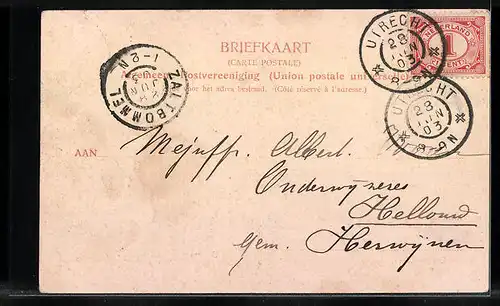 BRIEFKAART
(CARTE POSTALE)
Algemeene Postvereeniging (Union postale universelle)
voor het adres bestemd. (Côté réservé à l'adresse.)
UTRECHT
28
JUN
03
8-9N
NEDERLAND
1
CENT
UTRECHT
28
JUN
03
8-9N
ZALTBOMMEL
1-2N
AAN
Mejuffr. Albert.
Onderwijzeres
Hellouw
Gem. Herwijnen